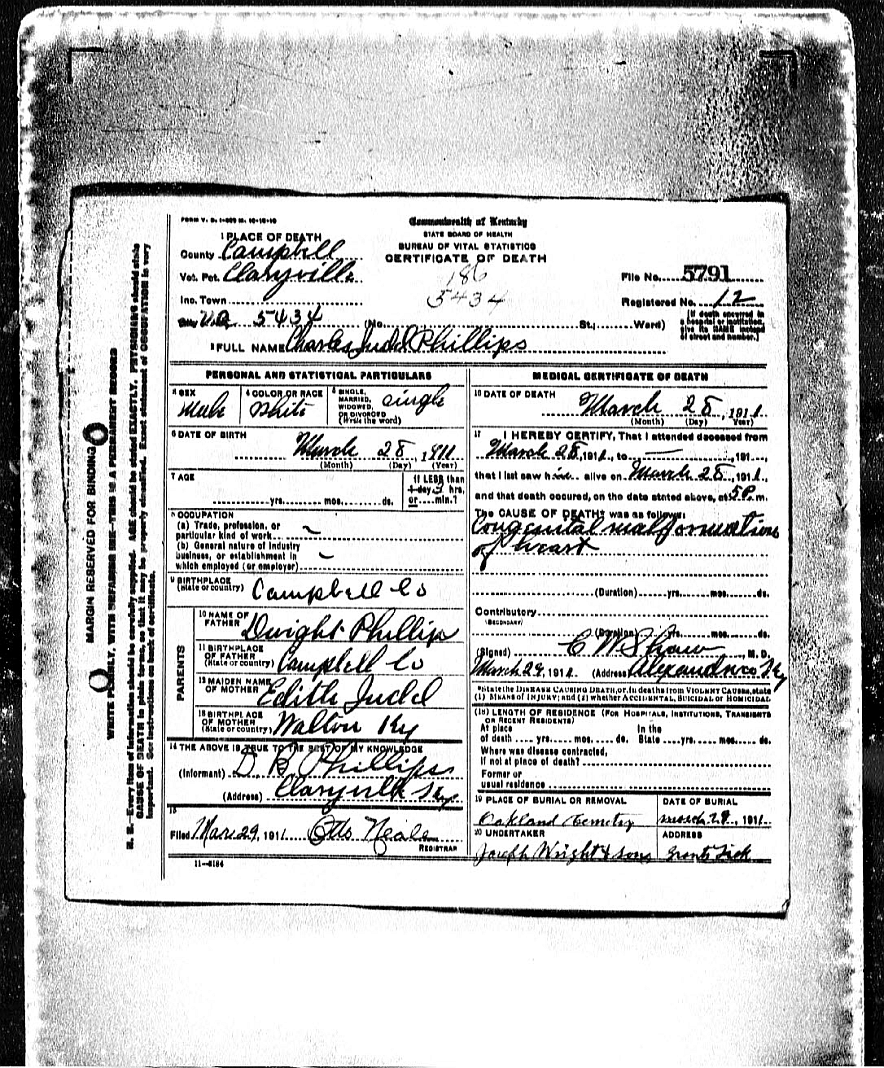 FORM V. S. 1-
Commonwealth of Kentucky
STATE BOARD OF HEALTH
BUREAU OF VITAL STATISTICS
CERTIFICATE OF DEATH
1 PLACE OF DEATH
County Campbell
Vot. Pct. Claryville
186
File No. 5791
Inc. Town
5434
Registered No. 12
5434 (No. St.; Ward)
[If death occurred in a hospital or institution, give its NAME instead of street and number.]
2 FULL NAME Charles Judd Phillips
PERSONAL AND STATISTICAL PARTICULARS
3 SEX Male
4 COLOR OR RACE White
5 SINGLE, MARRIED, WIDOWED, OR DIVORCED (Write the word) single
6 DATE OF BIRTH
March 28, 1911
(Month) (Day) (Year)
7 AGE
yrs. mos. ds.
If LESS than 1 day, hrs. or min.?
8 OCCUPATION
(a) Trade, profession, or
particular kind of work
(b) General nature of industry
business, or establishment in
which employed (or employer)
9 BIRTHPLACE
(State or country) Campbell Co
PARENTS
10 NAME OF
FATHER Dwight Phillips
11 BIRTHPLACE
OF FATHER
(State or country) Campbell Co
12 MAIDEN NAME
OF MOTHER Edith Judd
13 BIRTHPLACE
OF MOTHER
(State or country) Walton Ky
14 THE ABOVE IS TRUE TO THE BEST OF MY KNOWLEDGE
(Informant) D B Phillips
(Address) Claryville Ky
15
Filed Mar. 29, 1911 Otto Neale
REGISTRAR
11-5184
MEDICAL CERTIFICATE OF DEATH
16 DATE OF DEATH
March 28, 1911
(Month) (Day) (Year)
17 I HEREBY CERTIFY, That I attended deceased from
March 28, 1911, to — , 191
that I last saw him alive on March 28, 1911,
and that death occured, on the date stated above, at 5 P. m.
The CAUSE OF DEATH* was as follows:
Congenital malformations
of heart
(Duration) yrs. mos. ds.
Contributory
(SECONDARY)
(Duration) yrs. mos. ds.
(Signed) C W Shaw, M. D.
March 29, 1911 (Address) Alexandria Ky
*State the DISEASE CAUSING DEATH, or, in deaths from VIOLENT CAUSES, state
(1) MEANS OF INJURY; and (2) whether ACCIDENTAL, SUICIDAL OR HOMICIDAL
(18) LENGTH OF RESIDENCE (FOR HOSPITALS, INSTITUTIONS, TRANSIENTS
OR RECENT RESIDENTS)
At place In the
of death yrs. mos. ds. State yrs. mos. ds.
Where was disease contracted,
if not at place of death?
Former or
usual residence
19 PLACE OF BURIAL OR REMOVAL
Oakland Cemetry
DATE OF BURIAL
March 29, 1911
20 UNDERTAKER
Joseph Wright & sons
ADDRESS
Grants Lick
MARGIN RESERVED FOR BINDING
WRITE PLAINLY, WITH UNFADING INK—THIS IS A PERMANENT RECORD
N. B.—Every item of information should be carefully supplied. AGE should be stated EXACTLY. PHYSICIANS should state
CAUSE OF DEATH in plain terms, so that it may be properly classified. Exact statement of OCCUPATION is very
important. See instructions on back of certificate.